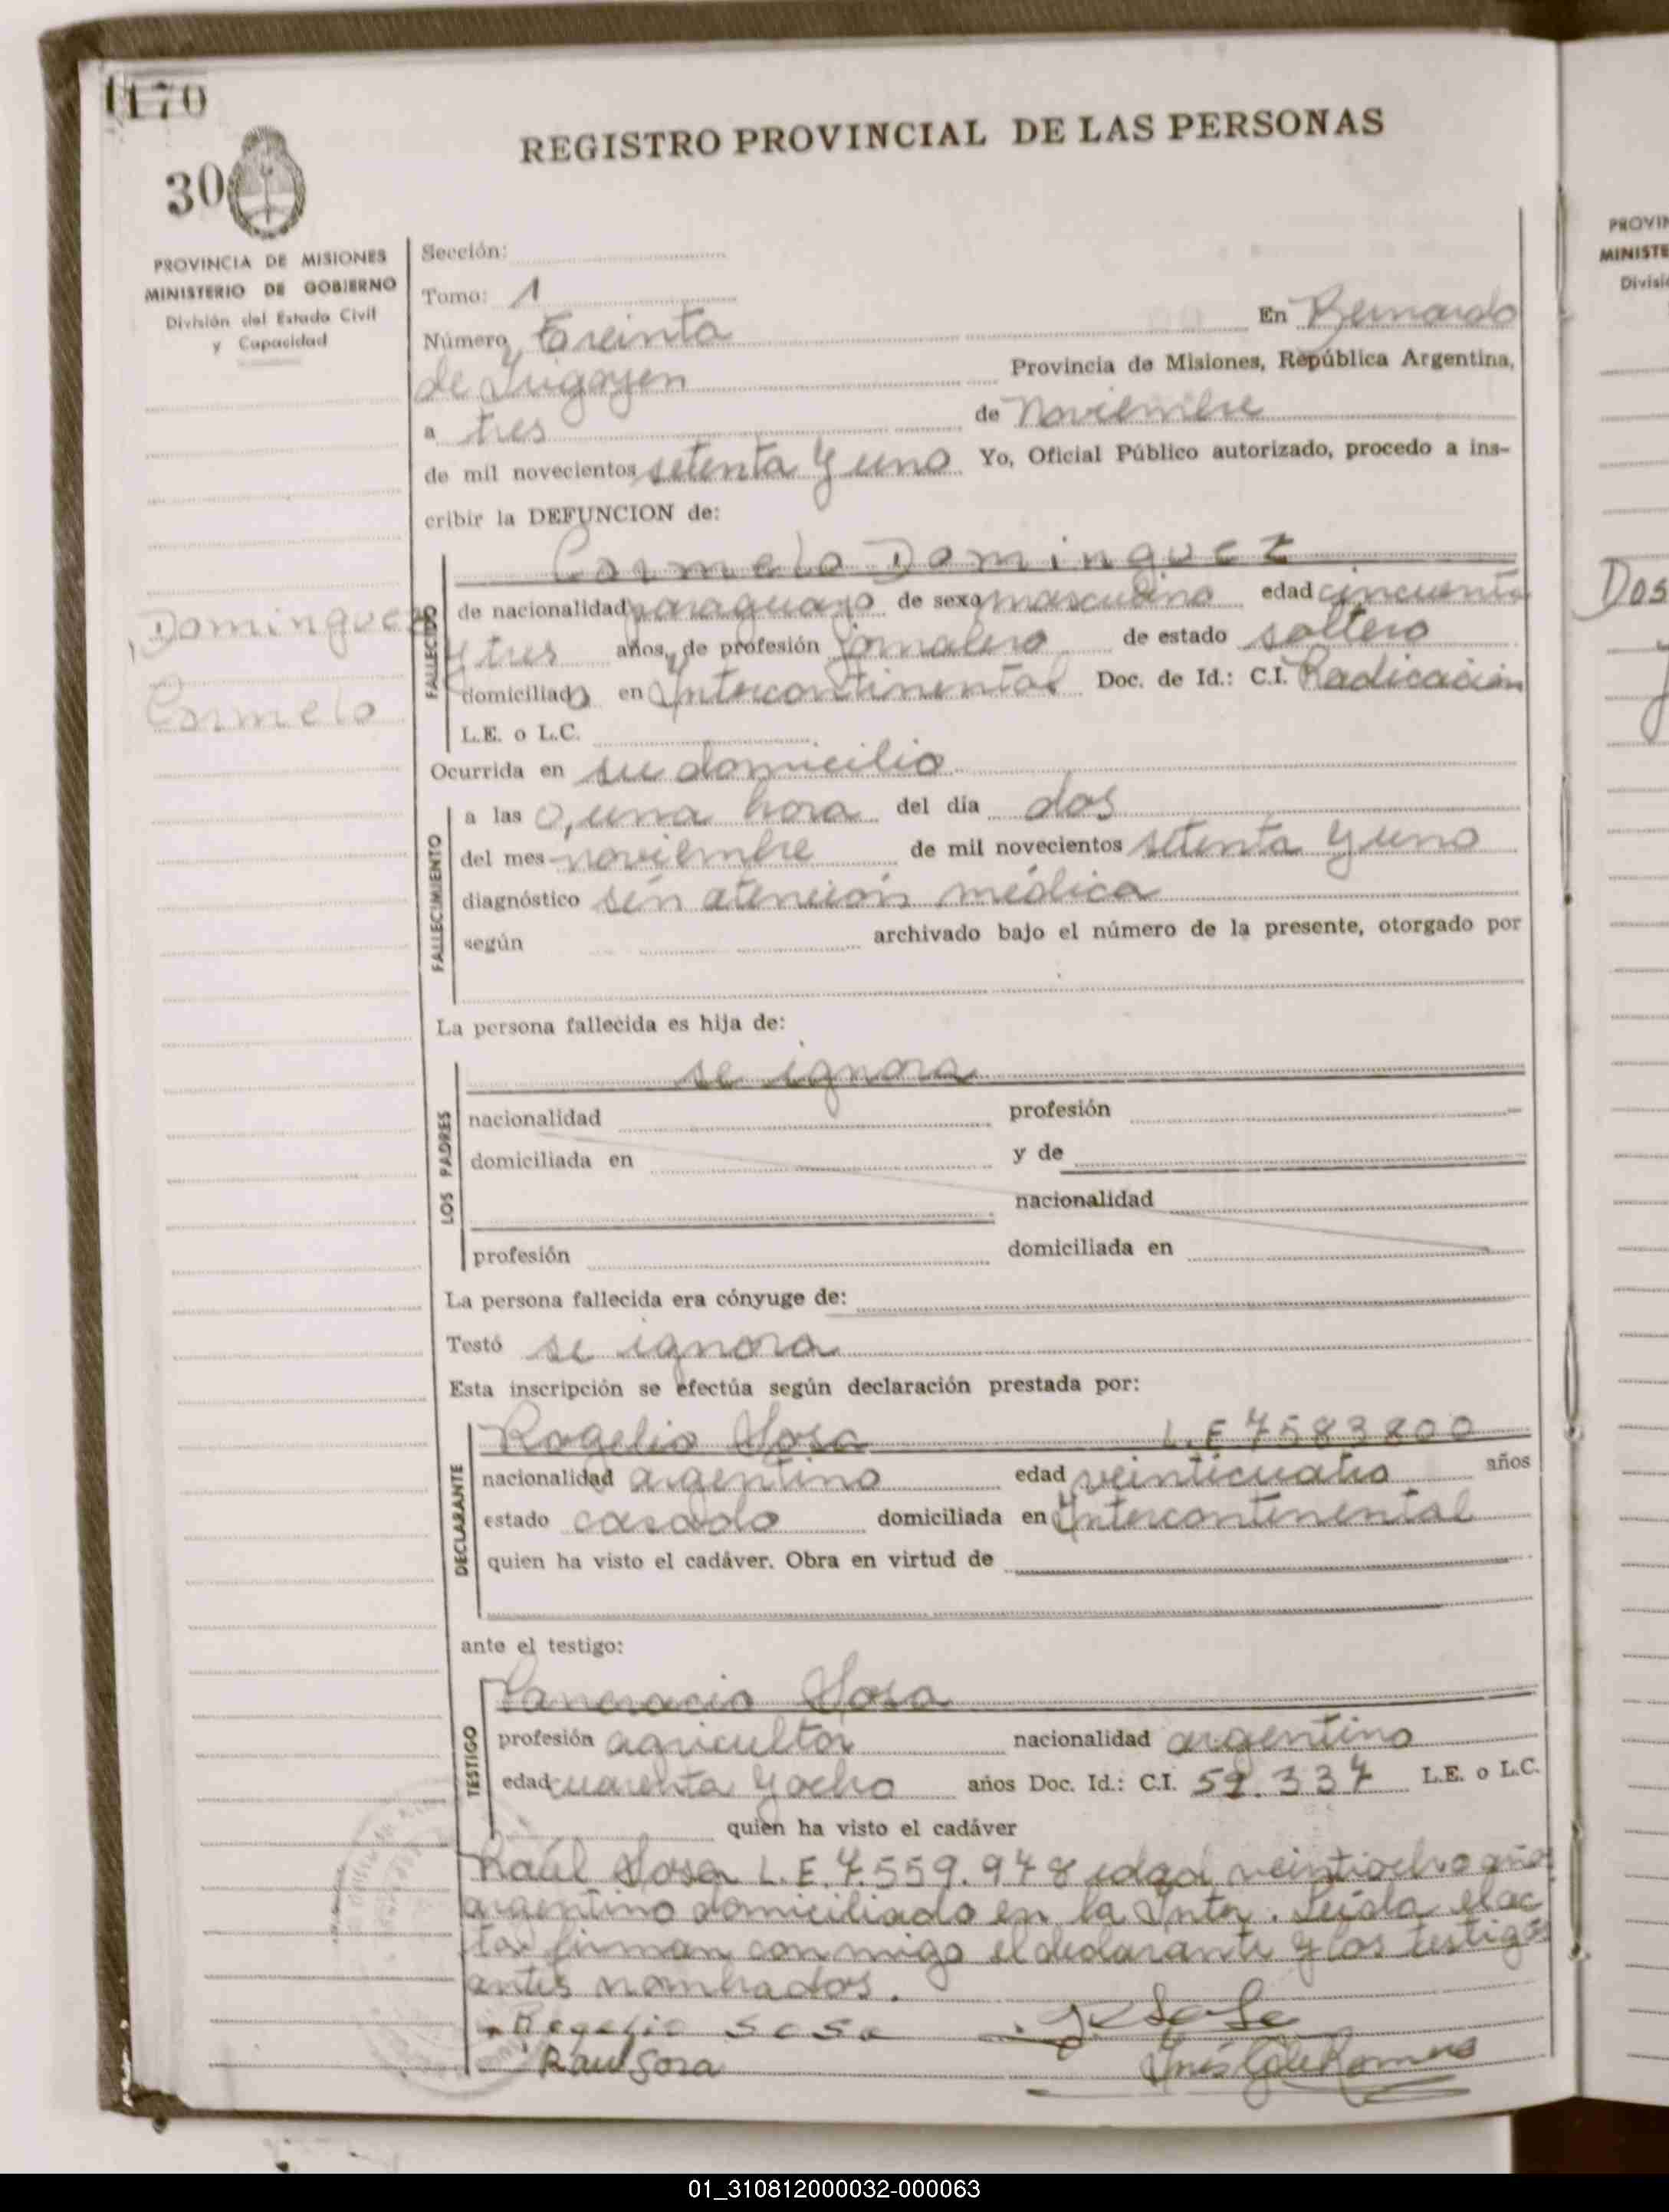 1170
30
REGISTRO PROVINCIAL DE LAS PERSONAS
PROVINCIA DE MISIONES
MINISTERIO DE GOBIERNO
División del Estado Civil
y Capacidad
Sección:
Tomo: 1
Número, Treinta En Bernardo
de Irigoyen Provincia de Misiones, República Argentina,
a tres de noviembre
de mil novecientos setenta y uno Yo, Oficial Público autorizado, procedo a ins-
cribir la DEFUNCION de:
Dominguez
Carmelo
FALLECIDO
Carmelo Dominguez
de nacionalidad paraguayo de sexo masculino edad cincuenta
y tres años, de profesión jornalero de estado soltero
domiciliado en Intercontinental Doc. de Id.: C.I. Radicación
L.E. o L.C.
Ocurrida en su domicilio
FALLECIMIENTO
a las 0, una hora del día dos
del mes noviembre de mil novecientos setenta y uno
diagnóstico sin atención médica
según archivado bajo el número de la presente, otorgado por
La persona fallecida es hija de:
LOS PADRES
se ignora
nacionalidad profesión
domiciliada en y de
nacionalidad
profesión domiciliada en
La persona fallecida era cónyuge de:
Testó se ignora
Esta inscripción se efectúa según declaración prestada por:
DECLARANTE
Rogelio Sosa L.E 7583800
nacionalidad argentino edad veinticuatro años
estado casado domiciliada en Intercontinental
quien ha visto el cadáver. Obra en virtud de
ante el testigo:
TESTIGO
Pancracio Sosa
profesión agricultor nacionalidad argentino
edad cuarenta y ocho años Doc. Id.: C.I. 59.337 L.E. o L.C.
quien ha visto el cadáver
Raúl Sosa L.E. 7.559.948 edad veintiocho años
argentino domiciliado en la Inter. Leída el ac
ta firman conmigo el declarante y los testigos
antes nombrados.
Rogelio Sosa
Raul Sosa
PROVIN
MINISTE
Divisió
Dos
01_310812000032-000063